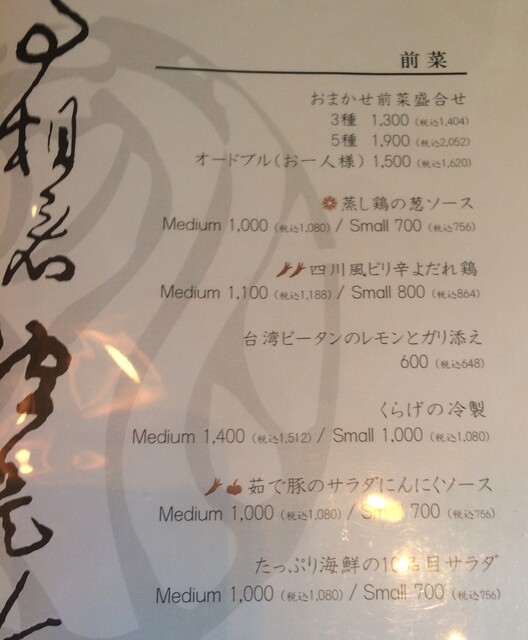 前菜
おまかせ前菜盛合せ
3種 1,300 (税込1,404)
5種 1,900 (税込2,052)
オードブル(お一人様) 1,500 (税込1,620)
蒸し鶏の葱ソース
Medium 1,000 (税込1,080) / Small 700 (税込756)
四川風ピリ辛よだれ鶏
Medium 1,100 (税込1,188) / Small 800 (税込864)
台湾ピータンのレモンとガリ添え
600 (税込648)
くらげの冷製
Medium 1,400 (税込1,512) / Small 1,000 (税込1,080)
茹で豚のサラダにんにくソース
Medium 1,000 (税込1,080) / Small 700 (税込756)
たっぷり海鮮の10品目サラダ
Medium 1,000 (税込1,080) / Small 700 (税込756)